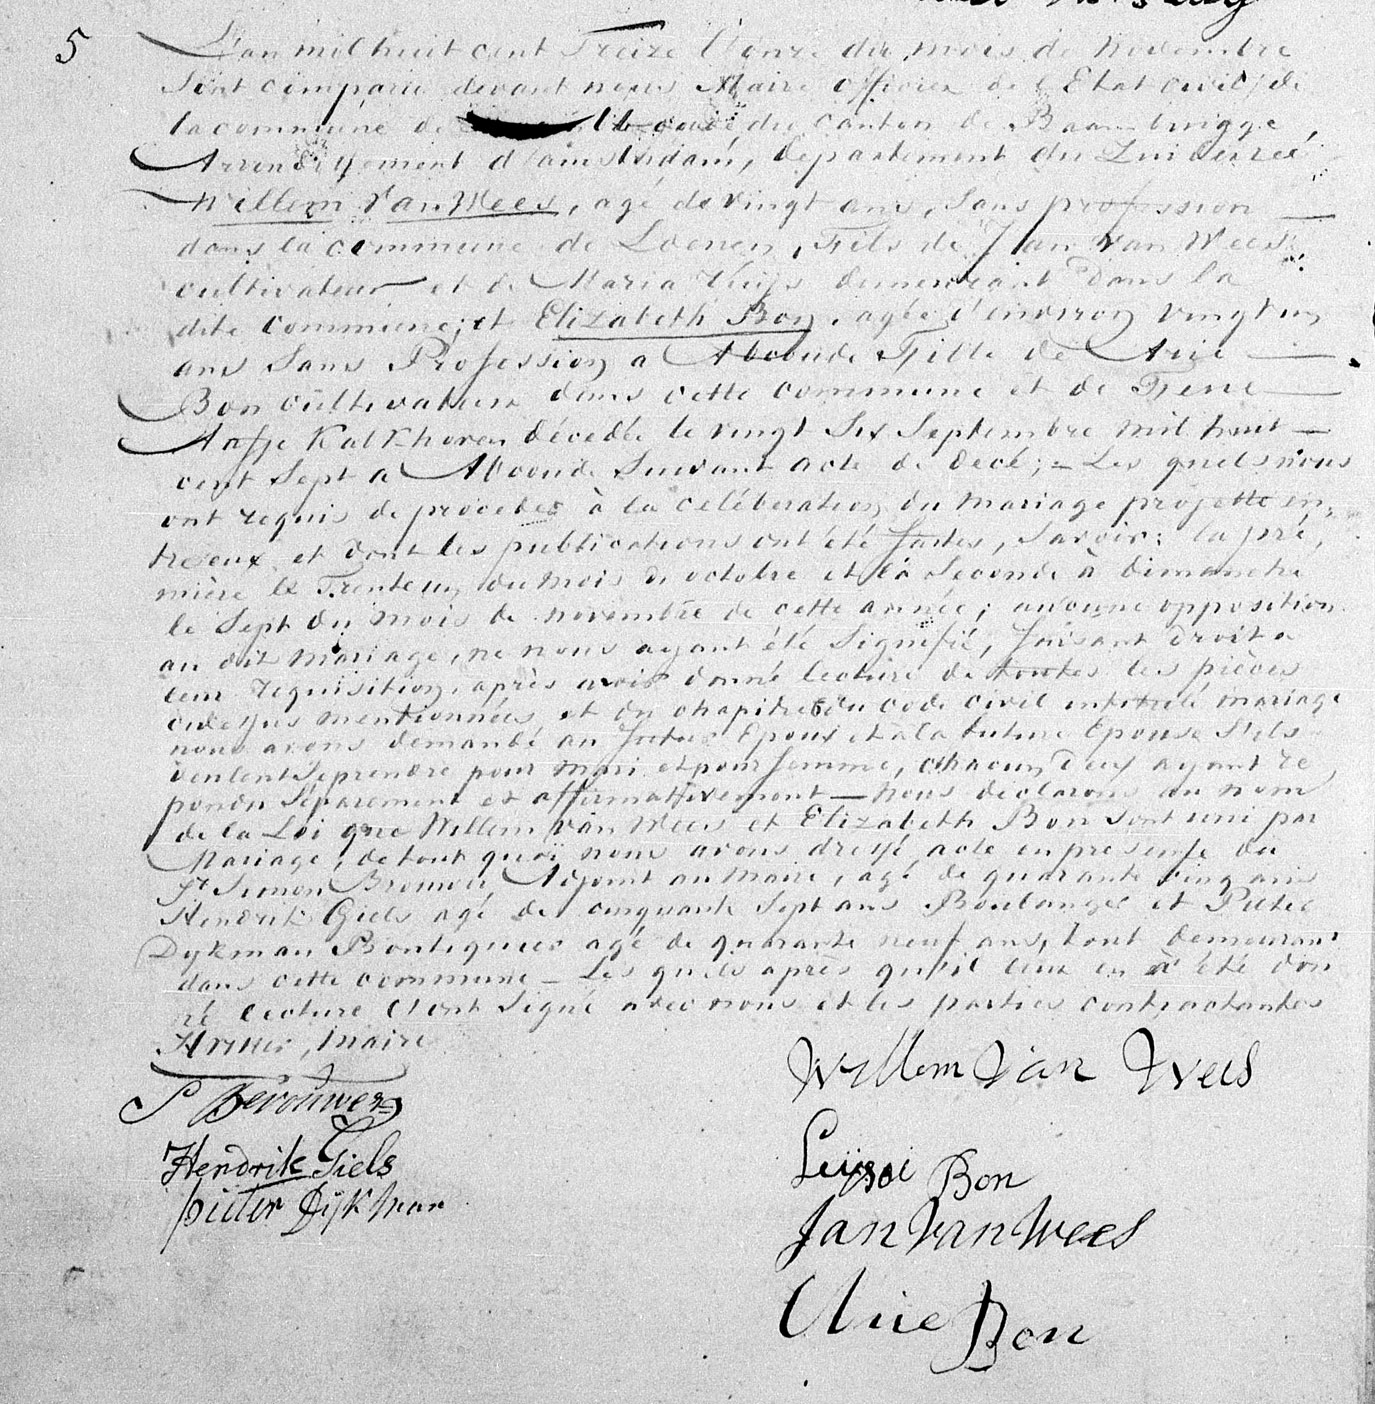 5
L'an mil huit cent Treize l'onze du mois de novembre
Sont comparu devant nous Maire officier de l'Etat civil de
la commune de Abcoude du Canton de Baambrugge,
Arrondissement d'amsterdam, departement du Zuiderzeé
Willem Van Wees, agé de vingt ans, sans profession
dans la commune de Loenen, Fils de Jan van Wees
cultivateur et de Maria demeurant Dans la
dite commune; et Elizabeth Bon, agée d'environ vingt un
ans Sans Profession a Abcoude Fille de Arie
Bon cultivateur dans cette commune et de
Aafje Kalkhoven décedée le vingt Six Septembre mil huit
cent Sept a Abcoude Suivant acte de decé; = Les quels nous
ont requis de proceder à la celéberation du mariage projetté en,
tre eux et dont les publications ont été faites, Savoir; la pré,
mière le Trente un du mois d'octobre et la Seconde à dimanche
le Sept du mois de novembre de cette année; aucune opposition
au dit mariage, ne nous ayant été Signifié, faisant droit a
leur requisition, après avoir donné lecture de toutes les pièces
cidessus mentionnées et du chapitre 6 du code civil intitulé mariage
nous avons demandé au futur Epoux et a la future Epouse S'ils
veulent Se prendre pour mari et pour femme, chacun d'eux ayant re,
pondu Séparement et affirmativement — nous declarons au nom
de la Loi que Willem van Wees et Elizabeth Bon Sont uni par
Mariage, de tout quoi nous avons dressé acte en presense du
Sr Simon Brouwer, Adjoint au maire, agé de quarante cinq ans
Hendrik Giels agé de cinquante Sept ans Boulanger et Pieter
Dykman Boutiquier agé de quarante neuf ans, tout demeurant
dans cette commune — Les quels après qu'il leur en a été don
né lecture l'ont Signé avec nous et les parties contractantes
maire
S Brouwer
Hendrik Giels
pieter Dijkman
Willem Van Wees
Bon
Jan Van Wees
Arie Bon